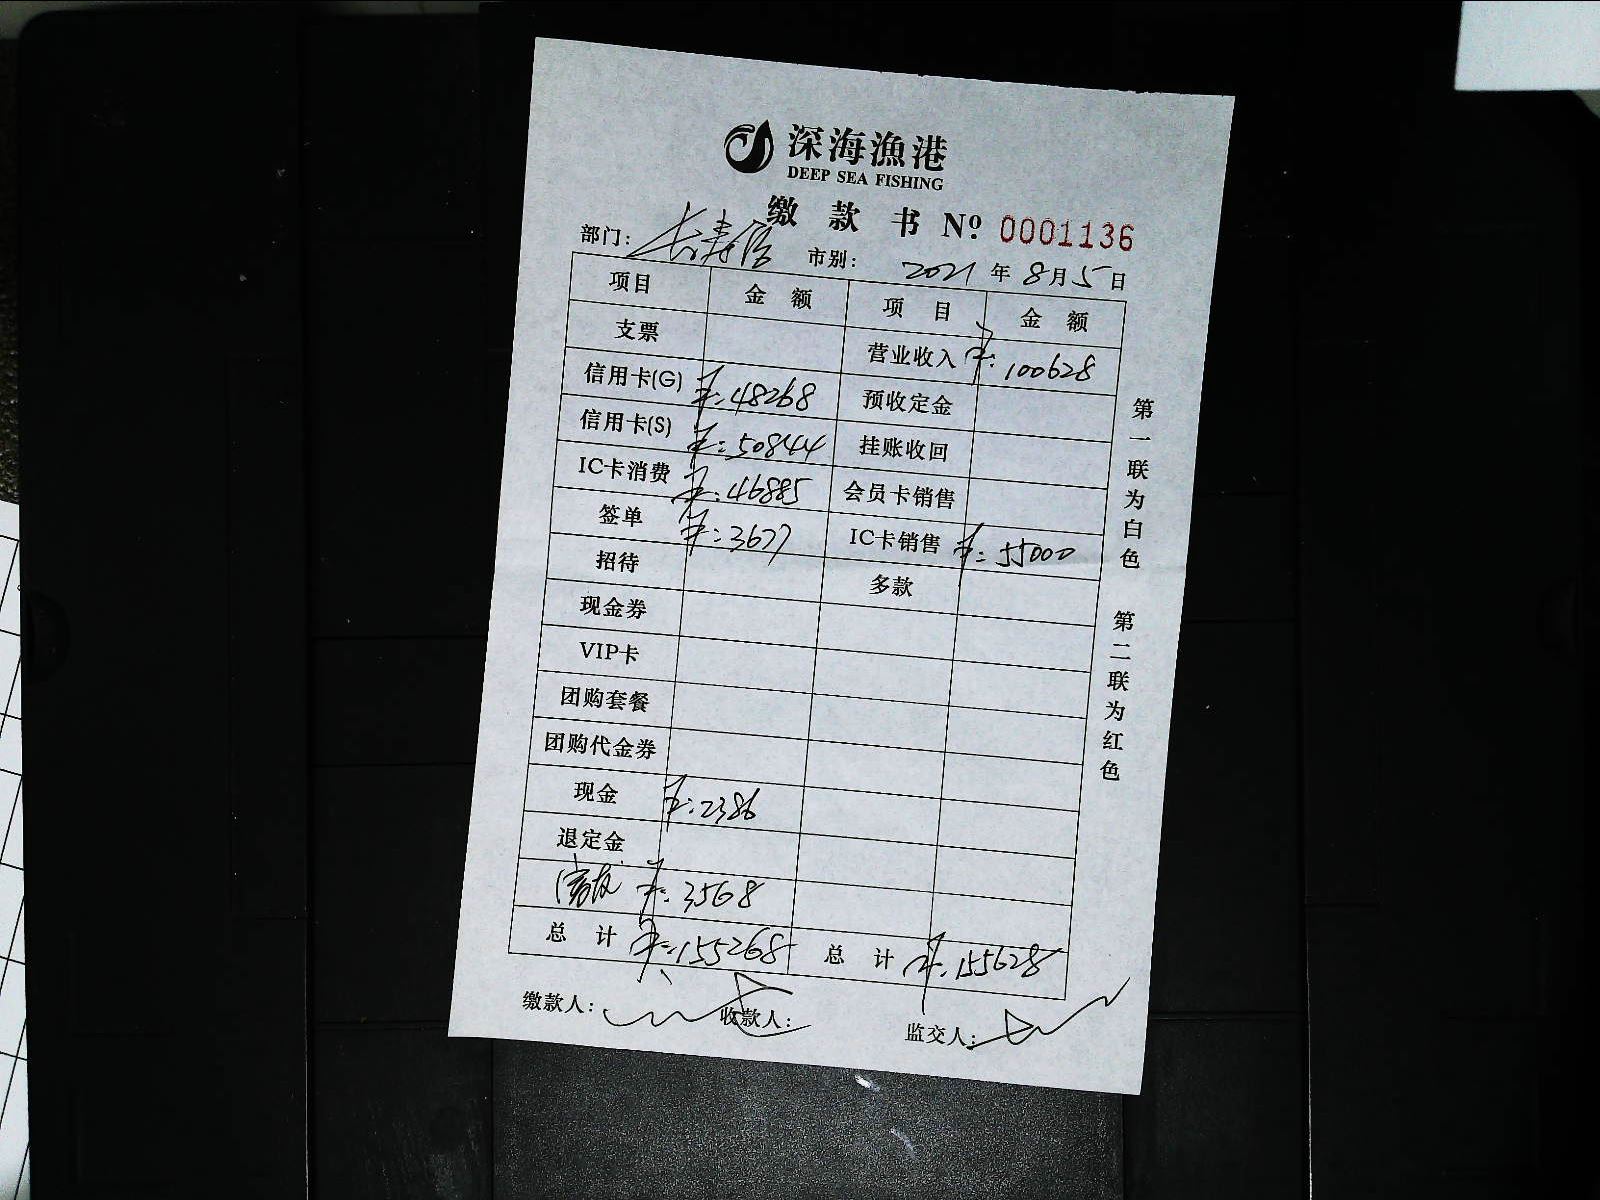 深海漁港
DEEP SEA FISHING
缴款书 Nº 0001136
部门: 长寿店 市别: 2021年8月5日
项目 金额 项目 金额
支票 营业收入 ¥:100628
信用卡(G) ¥:48268 预收定金
信用卡(S) ¥:50844 挂账收回
IC卡消费 ¥:46885 会员卡销售
签单 ¥:3677 IC卡销售 ¥:55000
招待 多款
现金券
VIP卡
团购套餐
团购代金券
现金 ¥:2386
退定金
¥:3568
总计 ¥:155268 总计 ¥:155628
缴款人: 收款人: 监交人:
第一联为白色 第二联为红色